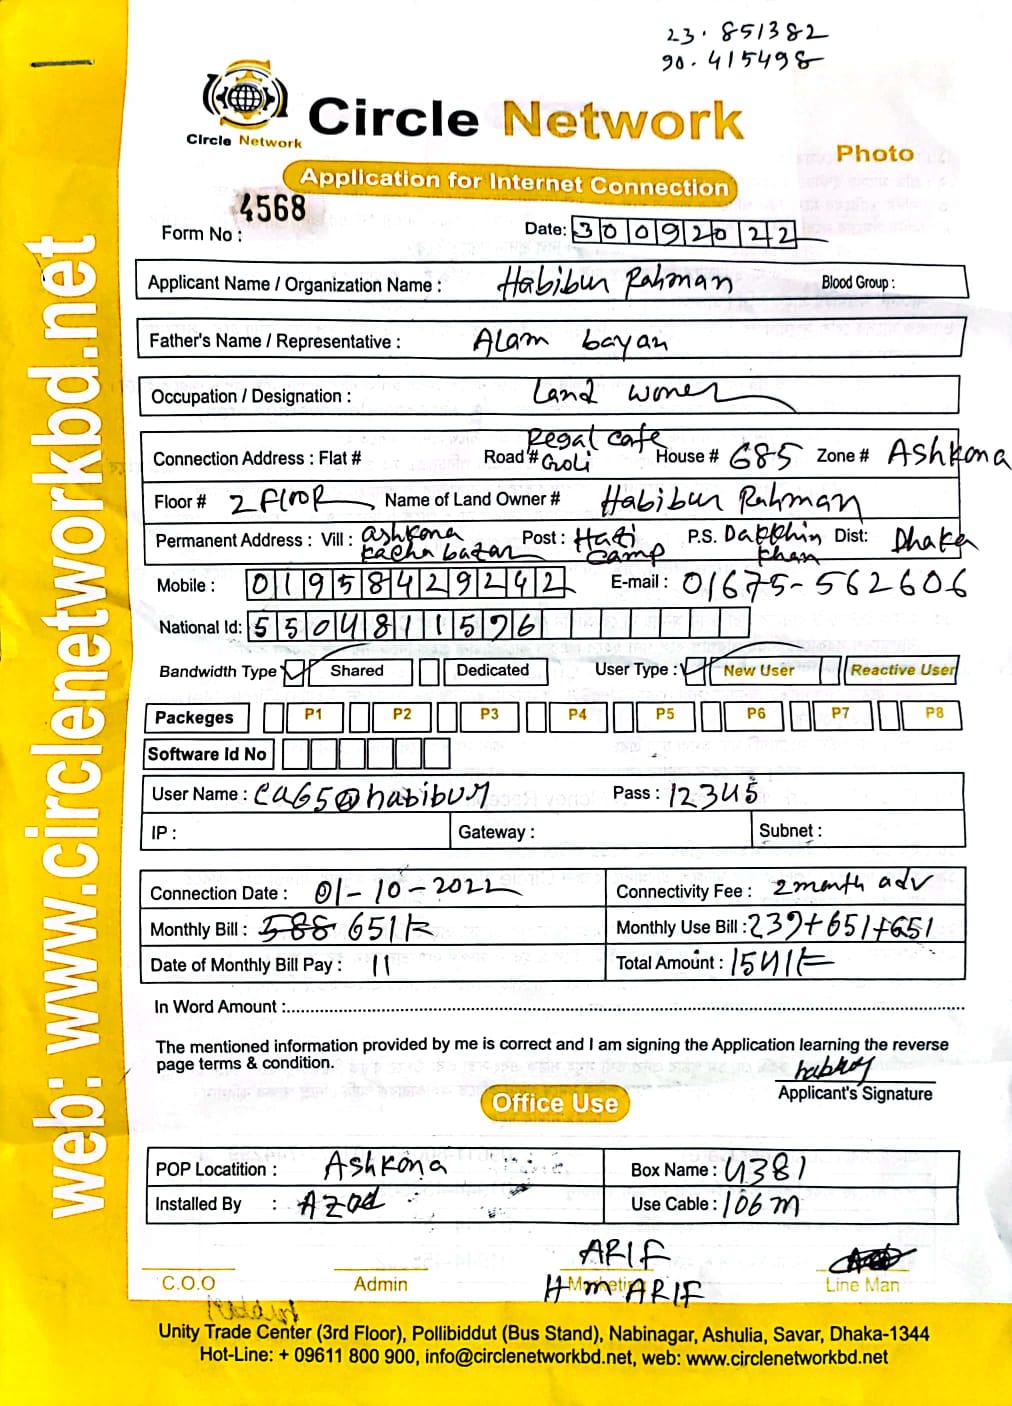 23.851382
90.415498
Circle Network
Circle Network
Photo
Application for Internet Connection
4568
Form No :
Date: 30092022
Applicant Name / Organization Name : Habibur Rahman Blood Group :
Father's Name / Representative : Alam bayan
Occupation / Designation : Land woner
Connection Address : Flat # Road # Regal cafe Goli House # 685 Zone # Ashkona
Floor # 2 Floor Name of Land Owner # Habibur Rahman
Permanent Address : Vill : ashkona kacha bazar Post : Hati camp P.S. Dakkhin khan Dist: Dhaka
Mobile : 01958429242 E-mail : 01675-562606
National Id: 5504811576
Bandwidth Type Shared Dedicated User Type : New User Reactive User
Packeges P1 P2 P3 P4 P5 P6 P7 P8
Software Id No
User Name : CA65@habibur Pass : 12345
IP : Gateway : Subnet :
Connection Date : 01-10-2022 Connectivity Fee : 2 month adv
Monthly Bill : 588 651 Monthly Use Bill : 239+651+651
Date of Monthly Bill Pay : 11 Total Amount : 1541
In Word Amount :
The mentioned information provided by me is correct and I am signing the Application learning the reverse
page terms & condition.
Applicant's Signature
Office Use
POP Locatition : Ashkona Box Name : 4381
Installed By : Azad Use Cable : 106m
ARIF
C.O.O Admin Marketing Line Man
H m ARIF
Unity Trade Center (3rd Floor), Pollibiddut (Bus Stand), Nabinagar, Ashulia, Savar, Dhaka-1344
Hot-Line: + 09611 800 900, info@circlenetworkbd.net, web: www.circlenetworkbd.net
web: www.circlenetworkbd.net